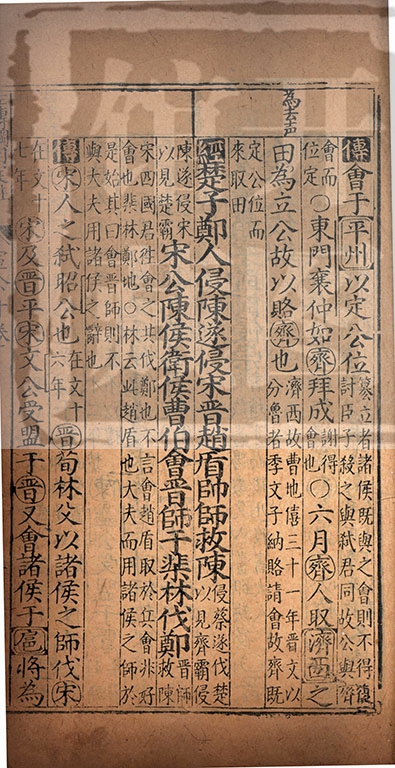 為去声
傳會于平州以定公位篡立者諸侯既與之會則不得復討臣子殺之與弒君同故公與齊
會而位定○東門襄仲如齊拜成謝得會也○六月齊人取濟西之
田為立公故以賂齊也濟西故曹地僖三十一年晋文以分魯者季文子納賂請會故齊
定公位而來取田
經楚子鄭人侵陳遂侵宋晋趙盾帥師救陳侵蔡遂伐楚以見齊霸侵
陳遂侵宋以見楚霸宋公陳侯衛侯曹伯會晋師于棐林伐鄭晋師救陳
宋四國君徃會之共伐鄭也不言會趙盾取於兵會非好會也棐林鄭地○林云此趙盾也大夫而用諸侯之師於
是始其曰會晋師則不與大夫用諸侯之辭也
傳宋人之弒昭公也在文十六年晋荀林父以諸侯之師伐宋
在文十七年宋及晋平宋文公受盟于晋又會諸侯于扈將為